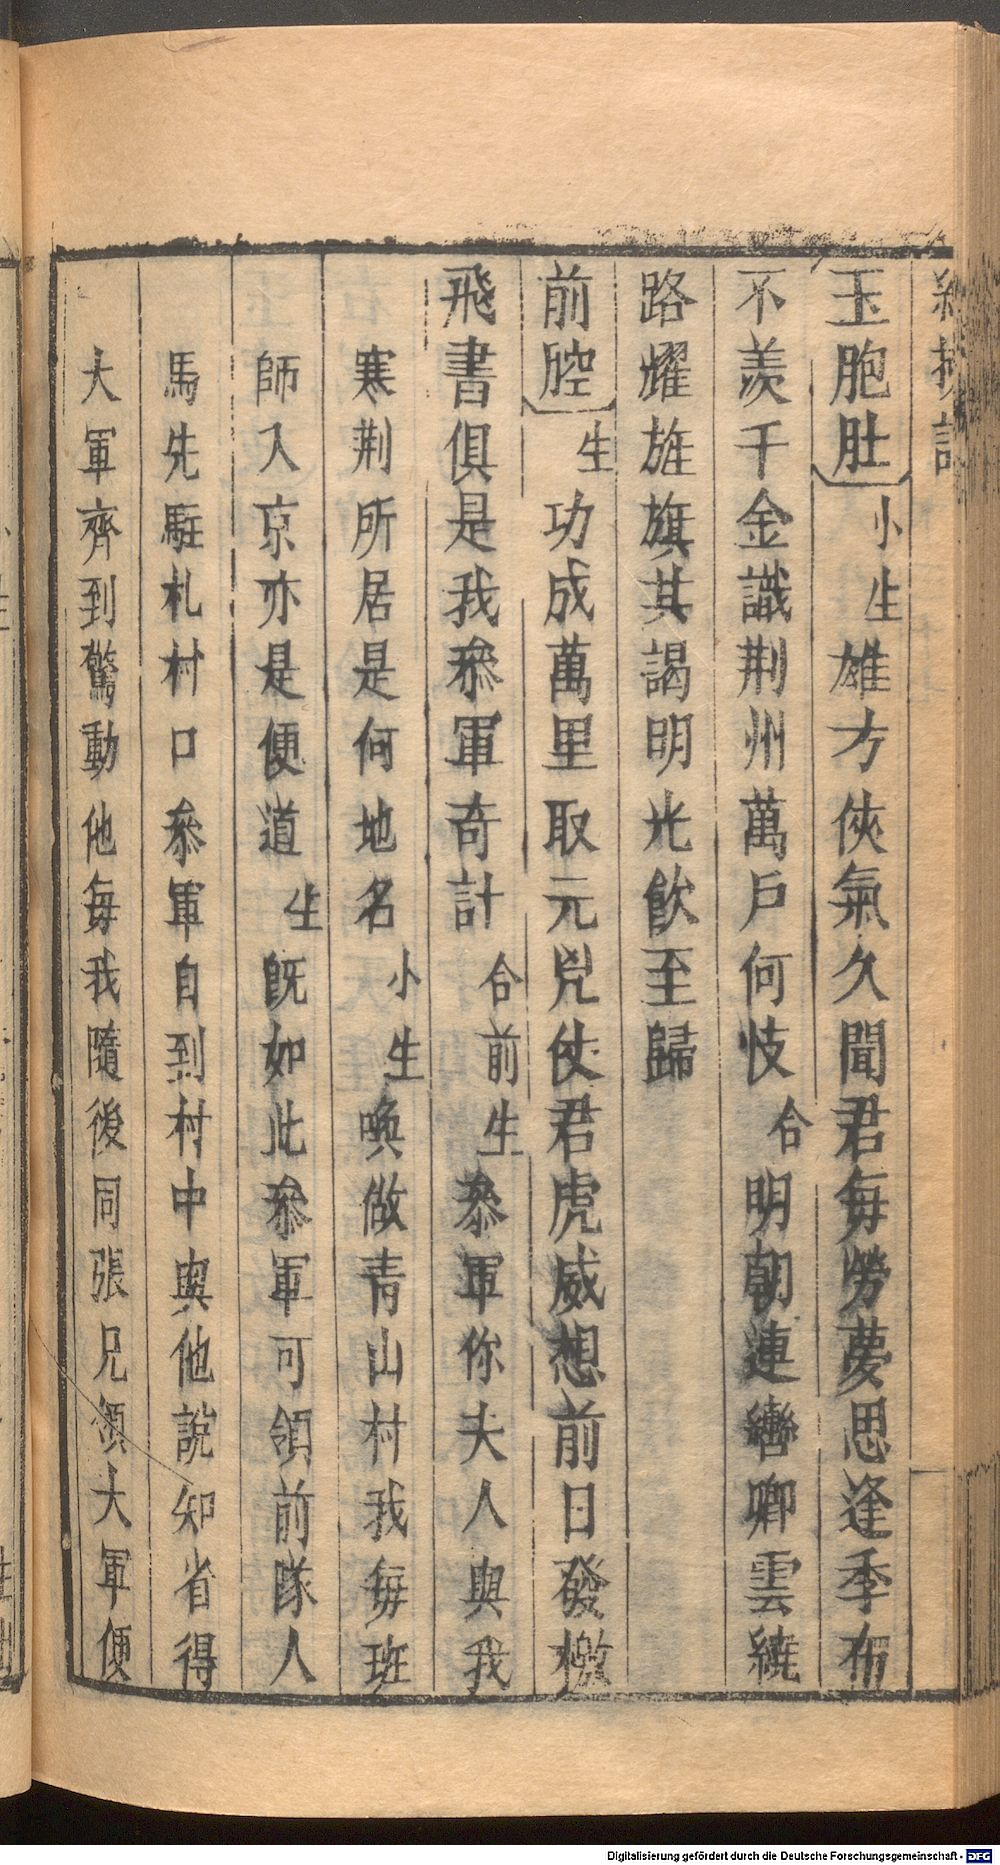 玉胞肚小生雄方俠氣久聞君每勞夢思逢季布
不羨千金識荆州萬戶何忮合明朝連轡卿雲繞
路耀旌旗其謁明光飮至歸
前腔生功成萬里取元兇仗君虎威想前日發檄
飛書俱是我叅軍奇計合前生叅軍你夫人與我
寒荆所居是何地名小生喚做青山村我每班
師入京亦是便道生旣如此叅軍可領前隊人
馬先駐札村口叅軍自到村中與他說知省得
大軍齊到驚動他每我隨後同張兄領大軍便
Digitalisierung gefördert durch die Deutsche Forschungsgemeinschaft - DFG